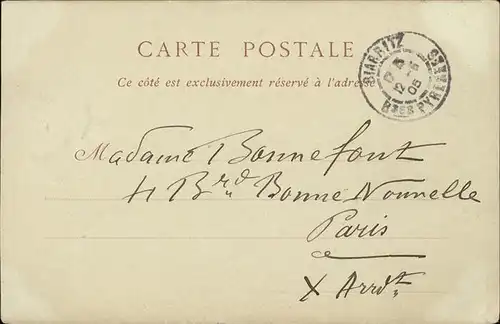 CARTE POSTALE
Ce côté est exclusivement réservé à l'adresse
BIARRITZ
12 - 5
05
BSES PYRENEES
Madame Bonnefont
4 Bd Bonne Nouvelle
Paris
X Arrdt